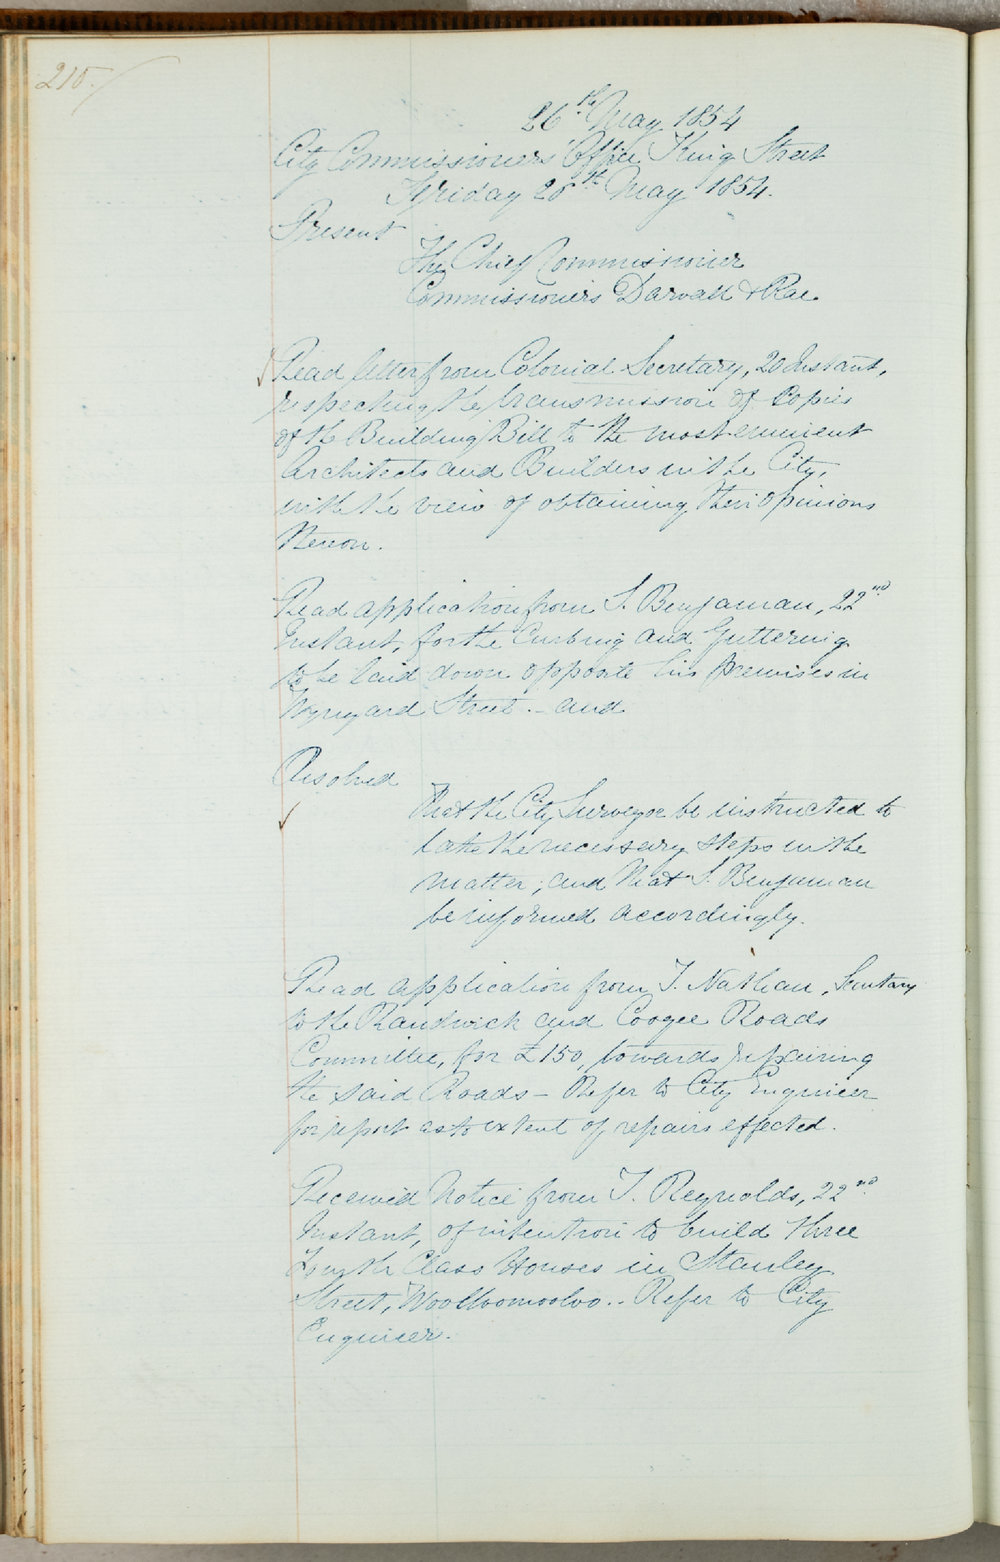 215.
26th May 1854
City Commissioners' Office King Street
Friday 26th May 1854.
Present
The Chief Commissioner
Commissioners Darvall & Rae.
Read letter from Colonial Secretary, 20 Instant,
respecting the transmission of Copies
of the Building Bill to the most eminent
Architects and Builders in the City,
with the view of obtaining their opinions
thereon.
Read application from S. Benjaman, 22nd
Instant, for the Curbing and Guttering
to be laid down opposite his premises in
Wynyard Street. - and
Resolved
That the City Surveyor be instructed to
take the necessary steps in the
matter; and that S. Benjaman
be informed accordingly.
Read application from T. Nathan, Secretary
to the Randwick and Coogee Roads
Committee, for £150, towards repairing
the said Roads - Refer to City Engineer
for report as to extent of repairs effected.
Received Notice from T. Reynolds, 22nd
Instant, of intention to build three
Fourth Class Houses in Stanley
Street, Woolloomooloo. - Refer to City
Engineer.